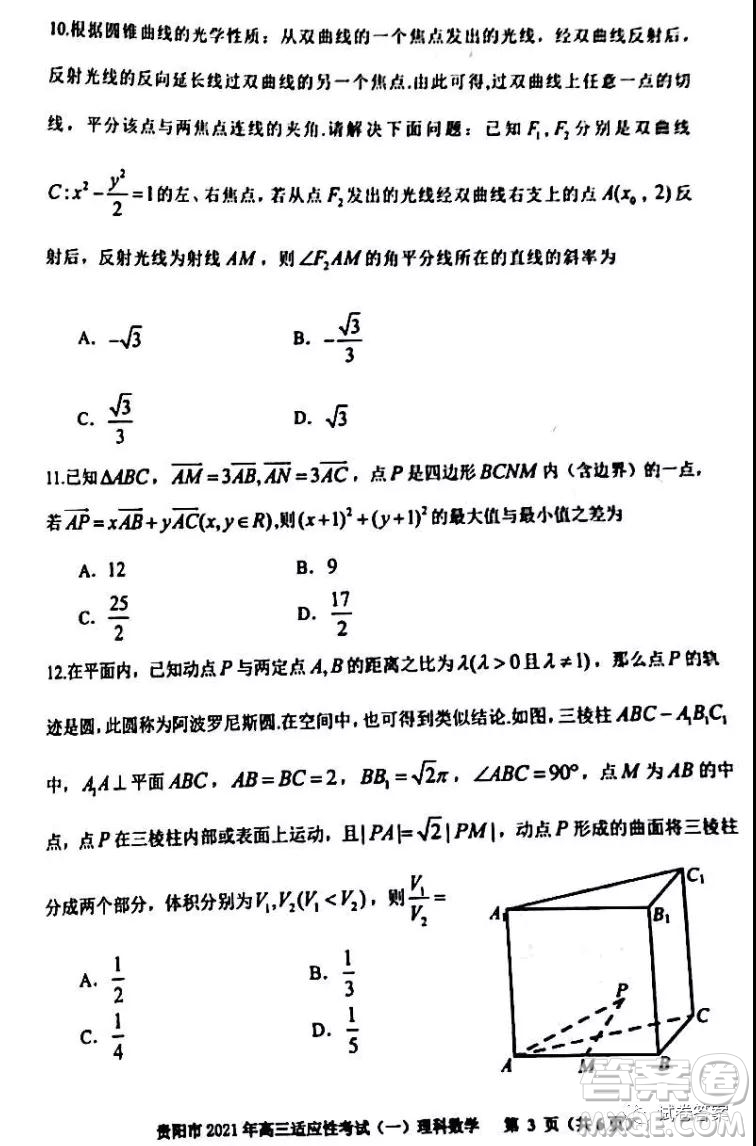 10.根据圆锥曲线的光学性质：从双曲线的一个焦点发出的光线，经双曲线反射后，
反射光线的反向延长线过双曲线的另一个焦点.由此可得,过双曲线上任意一点的切
线，平分该点与两焦点连线的夹角.请解决下面问题：已知 F₁, F₂ 分别是双曲线
C: x² - y²/2 = 1 的左、右焦点，若从点 F₂ 发出的光线经双曲线右支上的点 A(x₀, 2) 反
射后，反射光线为射线 AM，则 ∠F₂AM 的角平分线所在的直线的斜率为
A. -√3    B. -√3/3
C. √3/3    D. √3
11.已知 ΔABC, AM = 3AB, AN = 3AC, 点 P 是四边形 BCNM 内（含边界）的一点,
若 AP = xAB + yAC(x, y ∈ R), 则 (x+1)² + (y+1)² 的最大值与最小值之差为
A. 12    B. 9
C. 25/2    D. 17/2
12.在平面内，已知动点 P 与两定点 A, B 的距离之比为 λ(λ > 0 且 λ ≠ 1)，那么点 P 的轨
迹是圆,此圆称为阿波罗尼斯圆.在空间中，也可得到类似结论.如图，三棱柱 ABC - A₁B₁C₁
中，A₁A ⊥ 平面 ABC, AB = BC = 2, BB₁ = √2π, ∠ABC = 90°, 点 M 为 AB 的中
点，点 P 在三棱柱内部或表面上运动，且 |PA| = √2 |PM|，动点 P 形成的曲面将三棱柱
分成两个部分，体积分别为 V₁, V₂(V₁ < V₂)，则 V₁/V₂ =
A. 1/2    B. 1/3
C. 1/4    D. 1/5
C₁
A₁
B₁
P
C
A
M
B
答案圈
试卷答案
贵阳市 2021 年高三适应性考试（一）理科数学 第 3 页（共 6 页）